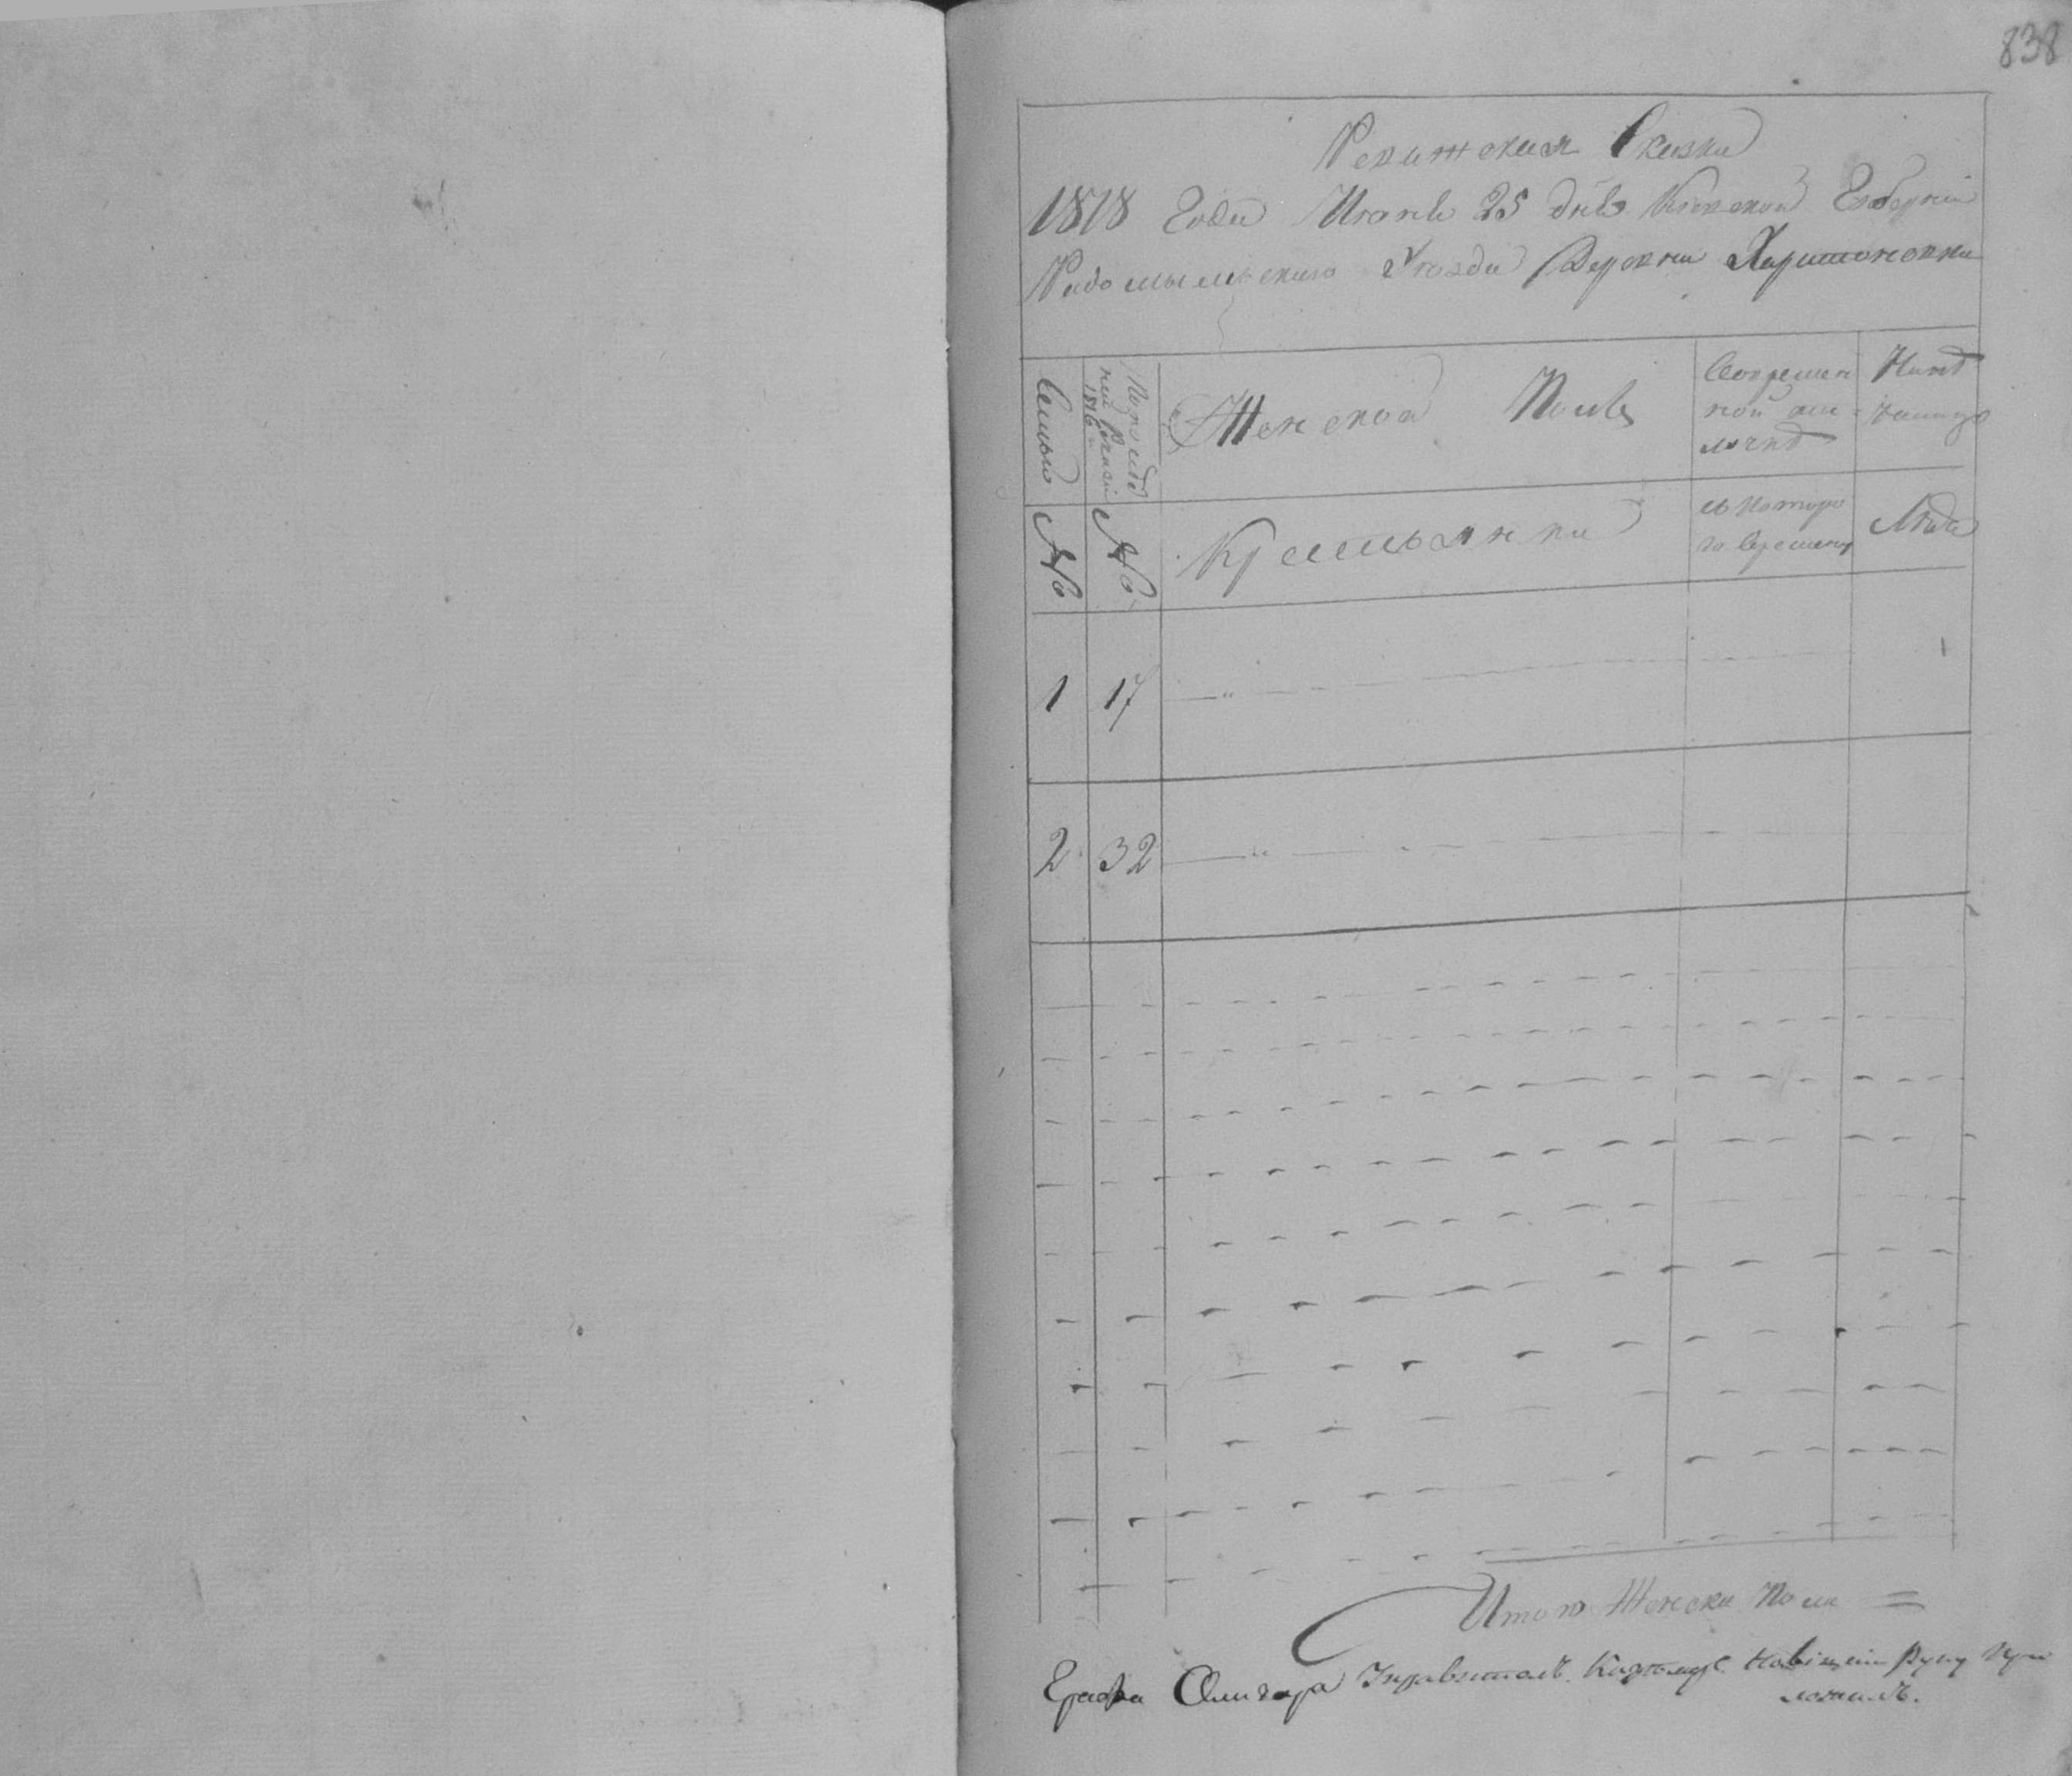 838
Ревижская Сказка
1818 Года Июня 25 дня Киевской Губернии
Радомысльского Уезда Деревни Харитоновки
Семьи
По последней Ревизии 1816
Женской Полъ
Во временной отлучкѣ
Нынѣ налицо
№
№
Крестьянки
съ Которого Времени
Лѣта
1 17 — „ — — —
2 32 — „ — — —
Итого Женска Пола =
Графа Олизара Управитель Казимир руку приложилъ.